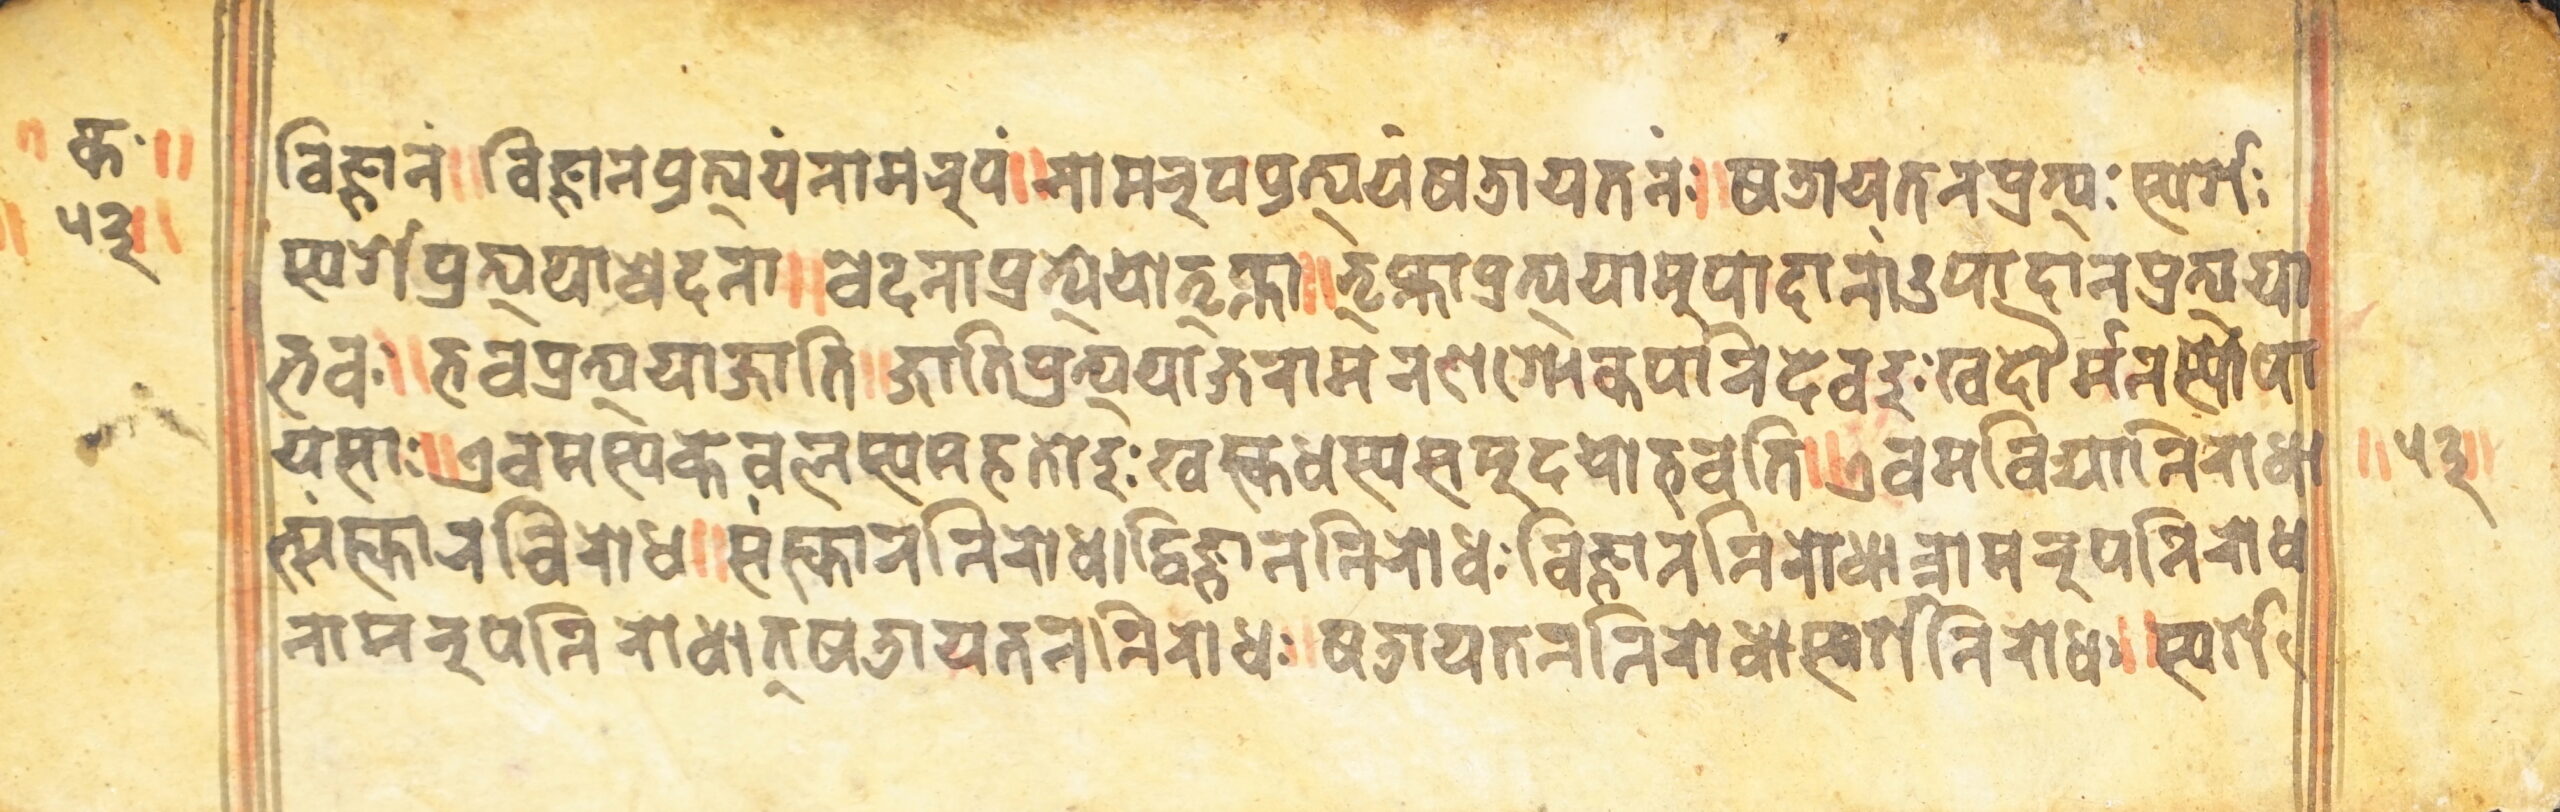 ॥ क ॥
॥ ५३ ॥
विज्ञानं ॥ विज्ञानप्रत्ययं नामरूपं ॥ नामरूपप्रत्ययं षडायतनंः ॥ षडायतनप्रत्यः स्पर्शः
स्पर्शप्रत्यया वेदना ॥ वेदनाप्रत्येया तृष्णा ॥ तृष्णाप्रत्ययामुपादानांउपादानप्रत्यया
भवः ॥ भवप्रत्यया जाति ॥ जातिप्रत्यया जरामरणशोकपरिदेवदुःखदौर्मनस्योपा
यसाः ॥ एवमस्य केवलस्य महतो दुःखस्कधस्य समुदयो भवति ॥ एवमविद्यानिरोधा
त्संस्कारन्निरोध ॥ संस्कारनिरोधाद्विज्ञाननिरोधः विज्ञाननिरोधान्नामरूपनिरोध
नामरूपनिरोधात् षडायतननिरोधः ॥ षडायतननिरोधा स्पर्शनिरोधः ॥ स्पर्शनि
॥ ५३ ॥